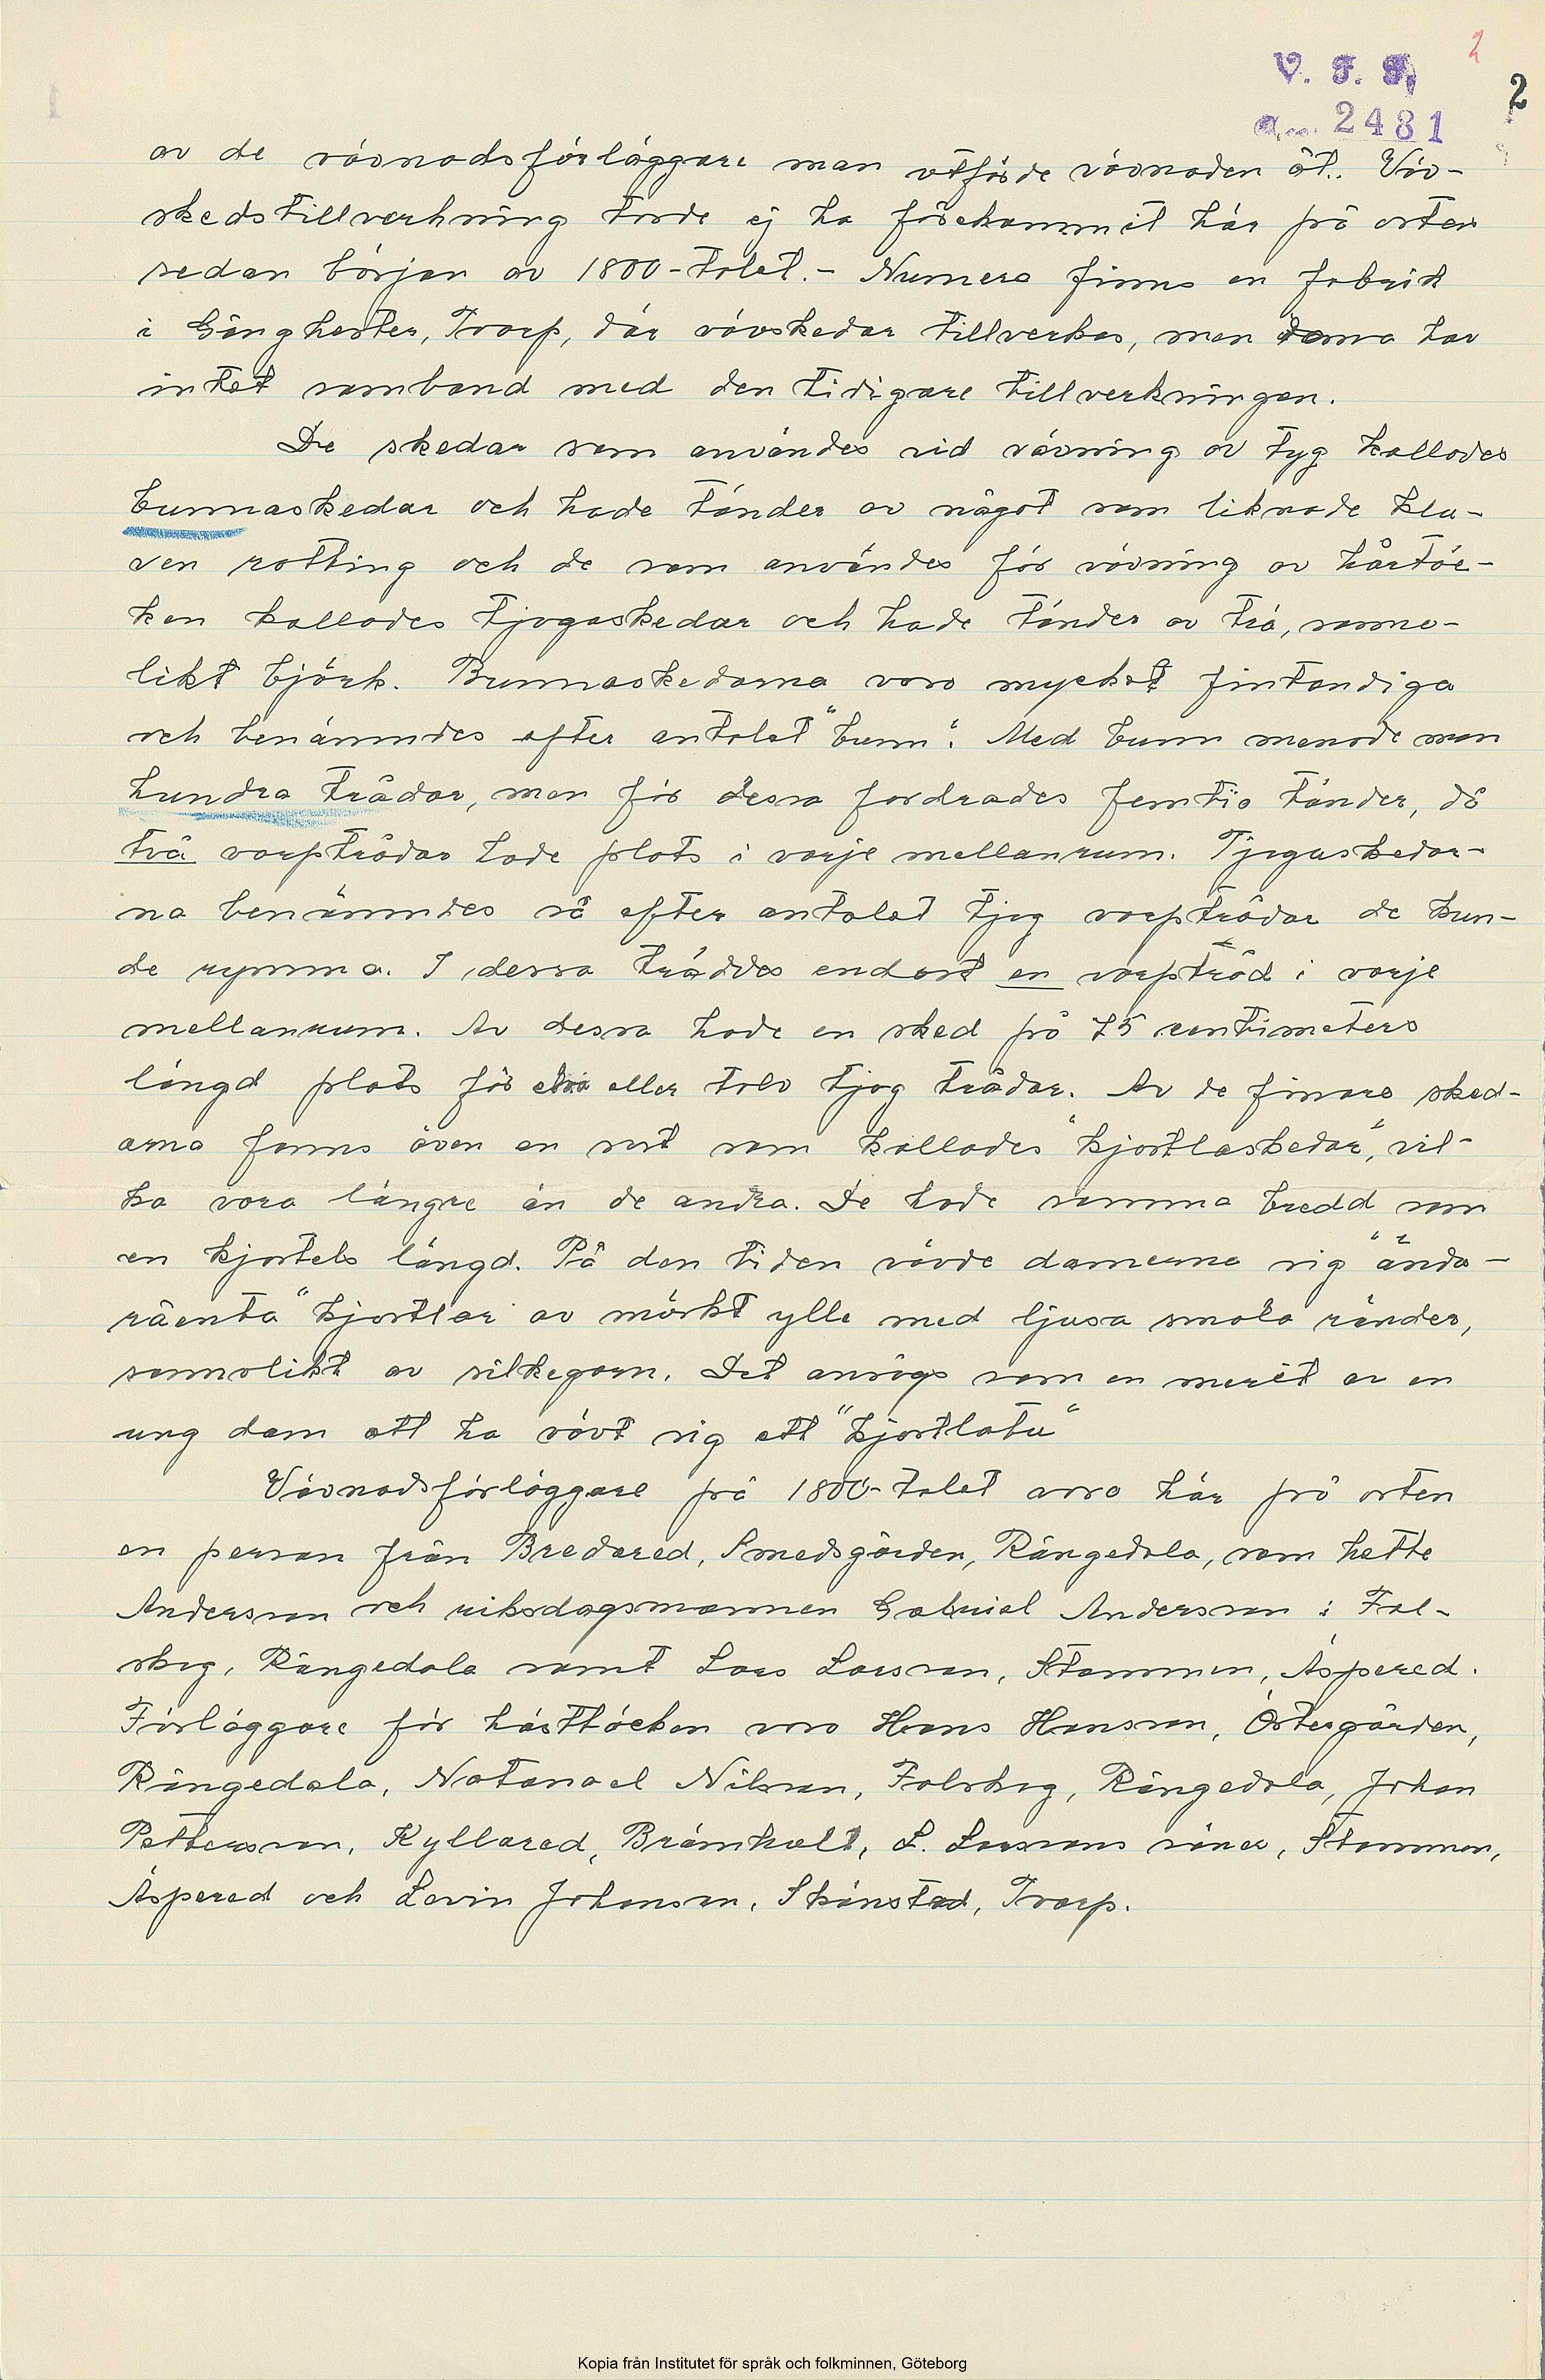 2
V. F. F.
2
Acc. 2481
av de vävnadsförläggare man utförde vävnaden åt. Väv-
skedstillverkning torde ej ha förekommit här på orten
sedan början av 1800-talet. - Numera finns en fabrik
i Gånghester, Toarp, där vävskedar tillverkas, men denna har
intet samband med den tidigare tillverkningen.
De skedar som användes vid vävning av tyg kallades
bunnaskedar och hade tänder av något som liknade klu-
ven rotting och de som användes för vävning av hårtäc-
ken kallades tjogaskedar och hade tänder av trä, sanno-
likt björk. Bunnaskedarna voro mycket fintandiga
och benämndes efter antalet "bunn". Med bunn menade man
hundra trådar, men för dessa fordrades femtio tänder, då
två varptrådar hade plats i varje mellanrum. Tjogaskedar-
na benämndes så efter antalet tjog varptrådar de kun-
de rymma. I dessa träddes endast en varptråd i varje
mellanrum. Av dessa hade en sked på 75 centimeters
längd plats för elva eller tolv tjog trådar. Av de finare sked-
arna fanns även en sort som kallades "kjortlaskedar", vil-
ka vora längre än de andra. De hade samma bredd som
en kjortels längd. På den tiden vävde damerna sig "ända-
räenta" kjortlar av mörkt ylle med ljusa smala ränder,
sannolikt av silkegarn. Det ansågs som en merit av en
ung dam att ha vävt sig ett "kjortlatu"
Vävnadsförläggare på 1800-talet voro här på orten
en person från Bredared, Smedsgården, Rångedala, som hette
Andersson och riksdagsmannen Gabriel Andersson i Fal-
skog, Rångedala samt Lars Larsson, Stommen, Äspered.
Förläggare för hästtäcken voro Hans Hansson, Östergården,
Rångedala, Natanael Nilsson, Falskog, Rångedala, Johan
Pettersson, Kyllared, Brämhult, L. Larssons söner, Stommen,
Äspered och Levin Johansson, Skånstad, Toarp.
Kopia från Institutet för språk och folkminnen, Göteborg